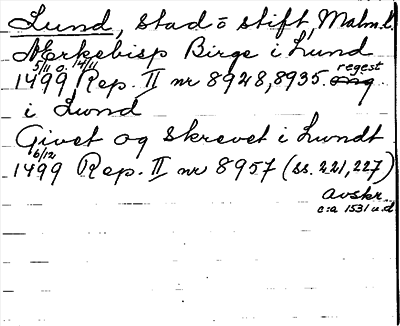 Lund, stad o stift, Malm.l.
Ærkebisp Birge i Lund
5/11 o. 14/11 regest
1499 Rep. II nr 8928, 8935.
i Lund
Givet og skrevet i Lundt
6/12
1499 Rep. II nr 8957 (ss. 221, 227)
avskr.
c:a 1531 u.d